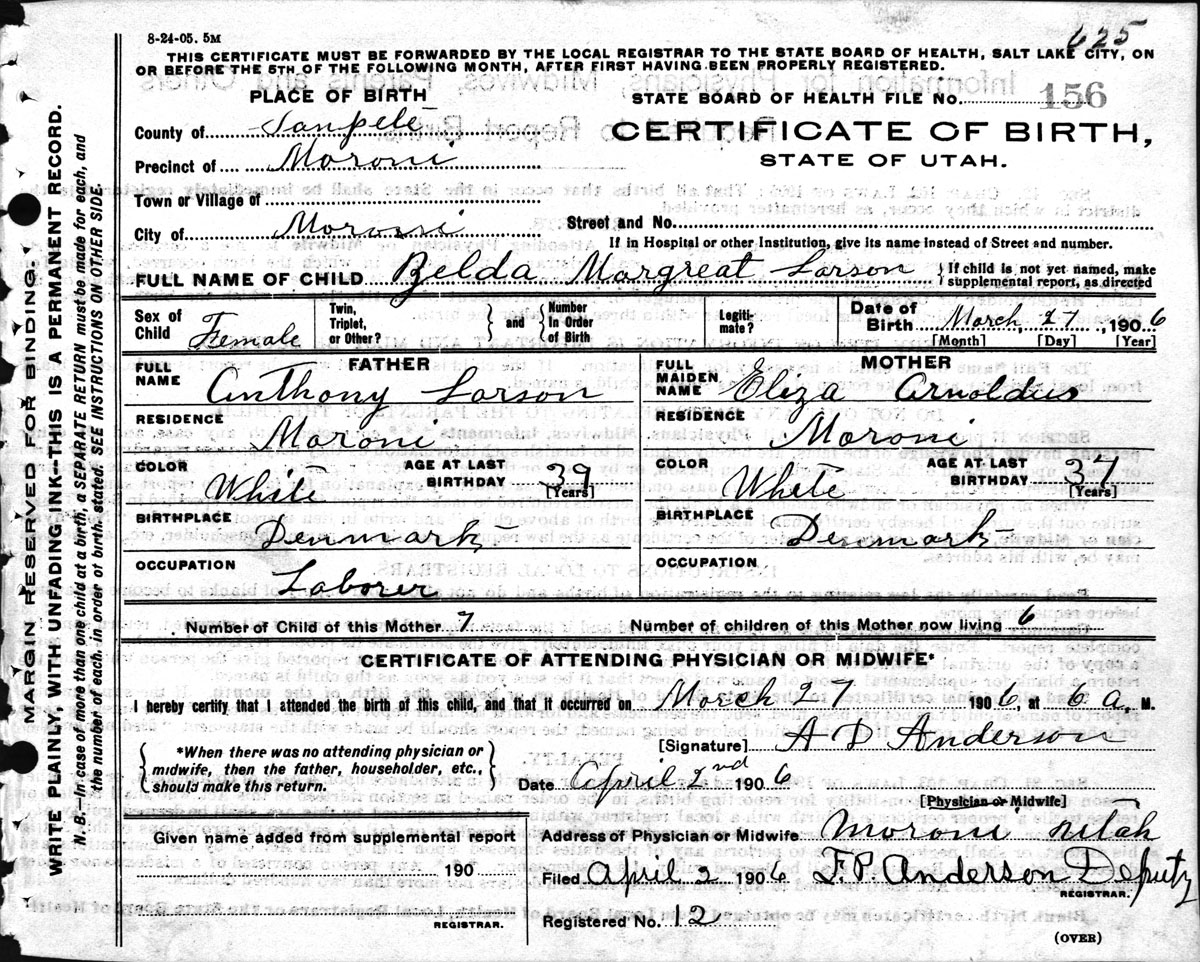 625
8-24-05. 5M
THIS CERTIFICATE MUST BE FORWARDED BY THE LOCAL REGISTRAR TO THE STATE BOARD OF HEALTH, SALT LAKE CITY, ON
OR BEFORE THE 5TH OF THE FOLLOWING MONTH, AFTER FIRST HAVING BEEN PROPERLY REGISTERED.
PLACE OF BIRTH
STATE BOARD OF HEALTH FILE No. 156
County of Sanpete
CERTIFICATE OF BIRTH,
STATE OF UTAH.
Precinct of Moroni
Town or Village of
City of Moroni Street and No.
If in Hospital or other Institution, give its name instead of Street and number.
FULL NAME OF CHILD Belda Margreat Larson { If child is not yet named, make supplemental report, as directed
Sex of Child Female Twin, Triplet, or Other? } and { Number In Order of Birth Legiti- mate? Date of Birth March 27, 1906
[Month] [Day] [Year]
FATHER
FULL NAME Anthony Larson
RESIDENCE Moroni
COLOR White AGE AT LAST BIRTHDAY 39 [Years]
BIRTHPLACE Denmark
OCCUPATION Laborer
MOTHER
FULL MAIDEN NAME Eliza Arnoldus
RESIDENCE Moroni
COLOR White AGE AT LAST BIRTHDAY 37 [Years]
BIRTHPLACE Denmark
OCCUPATION
Number of Child of this Mother 7 Number of children of this Mother now living 6
CERTIFICATE OF ATTENDING PHYSICIAN OR MIDWIFE*
I hereby certify that I attended the birth of this child, and that it occurred on March 27 1906, at 6 a. M.
{ *When there was no attending physician or midwife, then the father, householder, etc., should make this return. }
[Signature] A D Anderson
Date April 2nd 1906
[Physician or Midwife]
Given name added from supplemental report
190
REGISTRAR.
Address of Physician or Midwife Moroni Utah
Filed April 2 1906 F.P. Anderson Deputy
REGISTRAR.
Registered No. 12
(OVER)
MARGIN RESERVED FOR BINDING.
WRITE PLAINLY, WITH UNFADING INK—THIS IS A PERMANENT RECORD.
N. B.—In case of more than one child at a birth, a SEPARATE RETURN must be made for each, and
the number of each, in order of birth, stated. SEE INSTRUCTIONS ON OTHER SIDE.